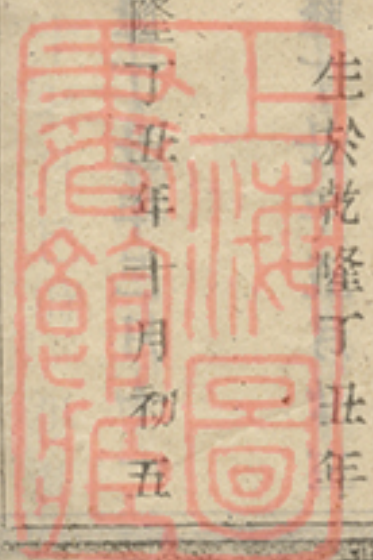 生於乾隆丁丑年
隆丁丑年十月初五
上海圖
書館藏